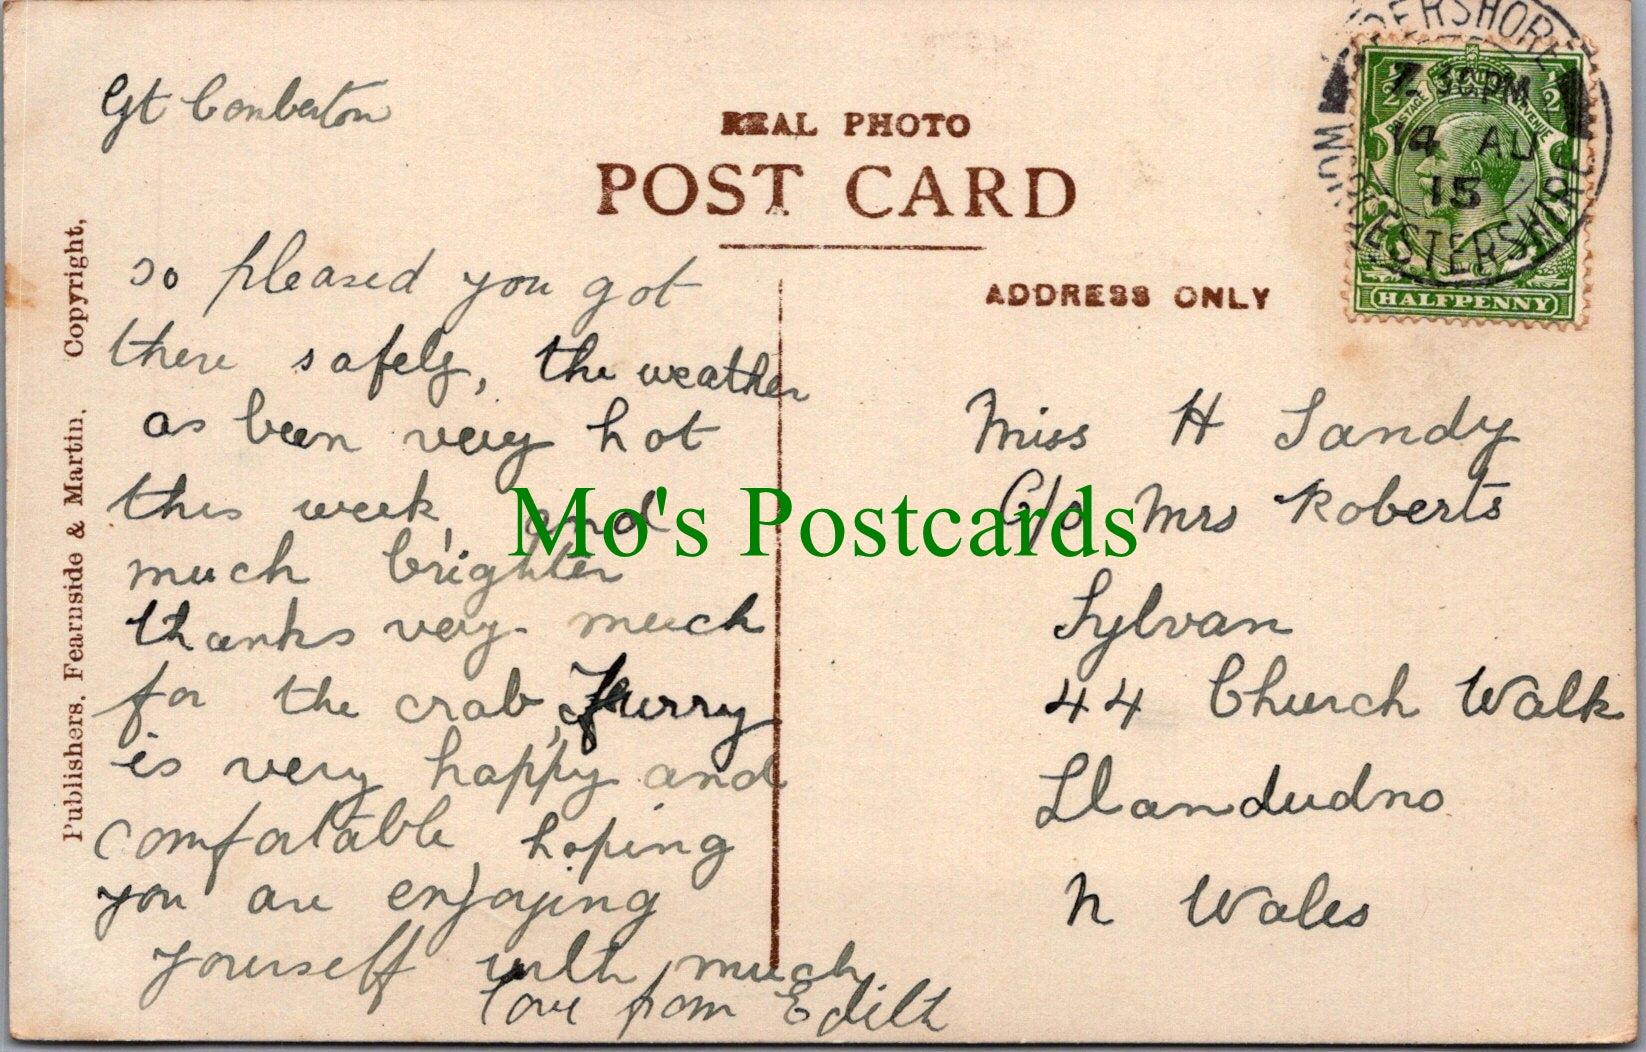 Gt Comberton
REAL PHOTO
POST CARD
ADDRESS ONLY
Publishers, Fearnside & Martin. Copyright,
PERSHORE
WORCESTERSHIRE
7.30PM
14 AU
15
POSTAGE REVENUE
HALFPENNY
so pleased you got
there safely, the weather
as been very hot
this week, and
much brighter
thanks very much
for the crab, Furry
is very happy and
comfortable, hoping
you are enjoying
yourself with much
love from Edith
Miss H Sandy
C/o Mrs Roberts
Sylvan
44 Church Walk
Llandudno
N Wales
Mo's Postcards